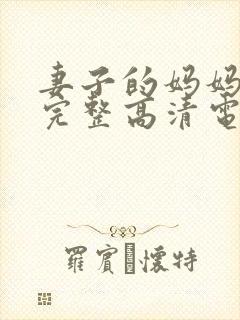 妻子的妈妈
完整高清電
羅賓 懷特